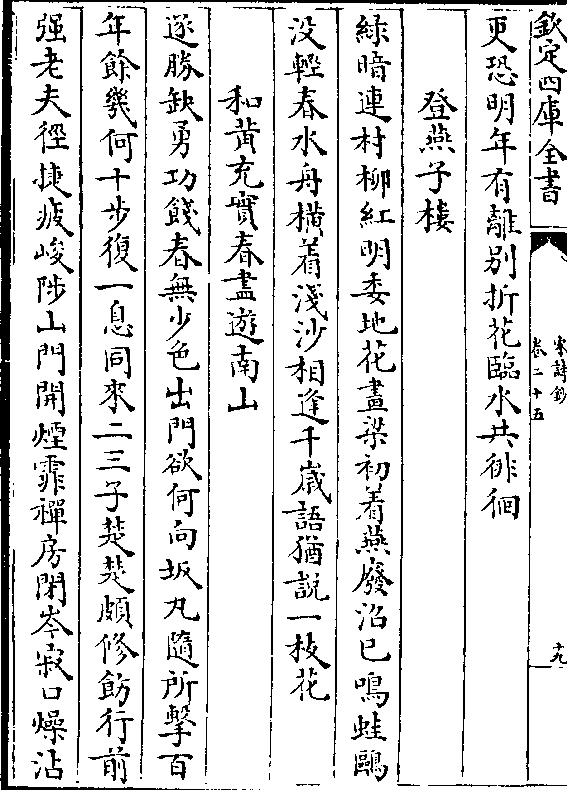 欽定四庫全書
宋詩鈔
卷二十五
十九
更恐明年有離别折花臨水共徘徊
登燕子樓
緑暗連村柳紅明委地花畫梁初着燕廢沼已鳴蛙鷗
没輕春水舟橫着淺沙相逢千嵗語猶説一枝花
和黄充實春盡遊南山
逐勝缺勇功餞春無少色出門欲何向坂丸隨所擊百
年餘㡬何十步復一息同來二三子楚楚頗修飭行前
强老夫徑捷疲峻陟山門開煙霏禪房閉岑寂口燥沾